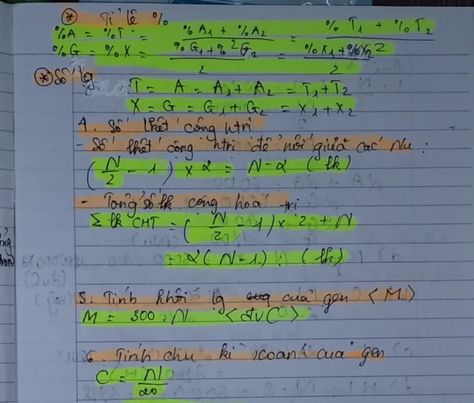 * Tỉ lệ %
%A = %T = %A1 + %A2 / 2 = %T1 + %T2 / 2
%G = %X = %G1 + %G2 / 2 = %X1 + %X2 / 2
* Số lg
T = A = A1 + A2 = T1 + T2
X = G = G1 + G2 = X1 + X2
4. Số lkết cộng htrị
- Số lkết cộng htrị để nối giữa các Nu :
(N/2 - 1) x 2 = N - 2 (lk)
- Tổng số lk cộng hoá trị
Σ lk CHT = (N/2 - 1) x 2 + N
= 2(N - 1) : (lk)
5. Tính khối lg của gen <M>
M = 300 . N <đvC>
6. Tính chu kì xoắn của gen
C = N/20